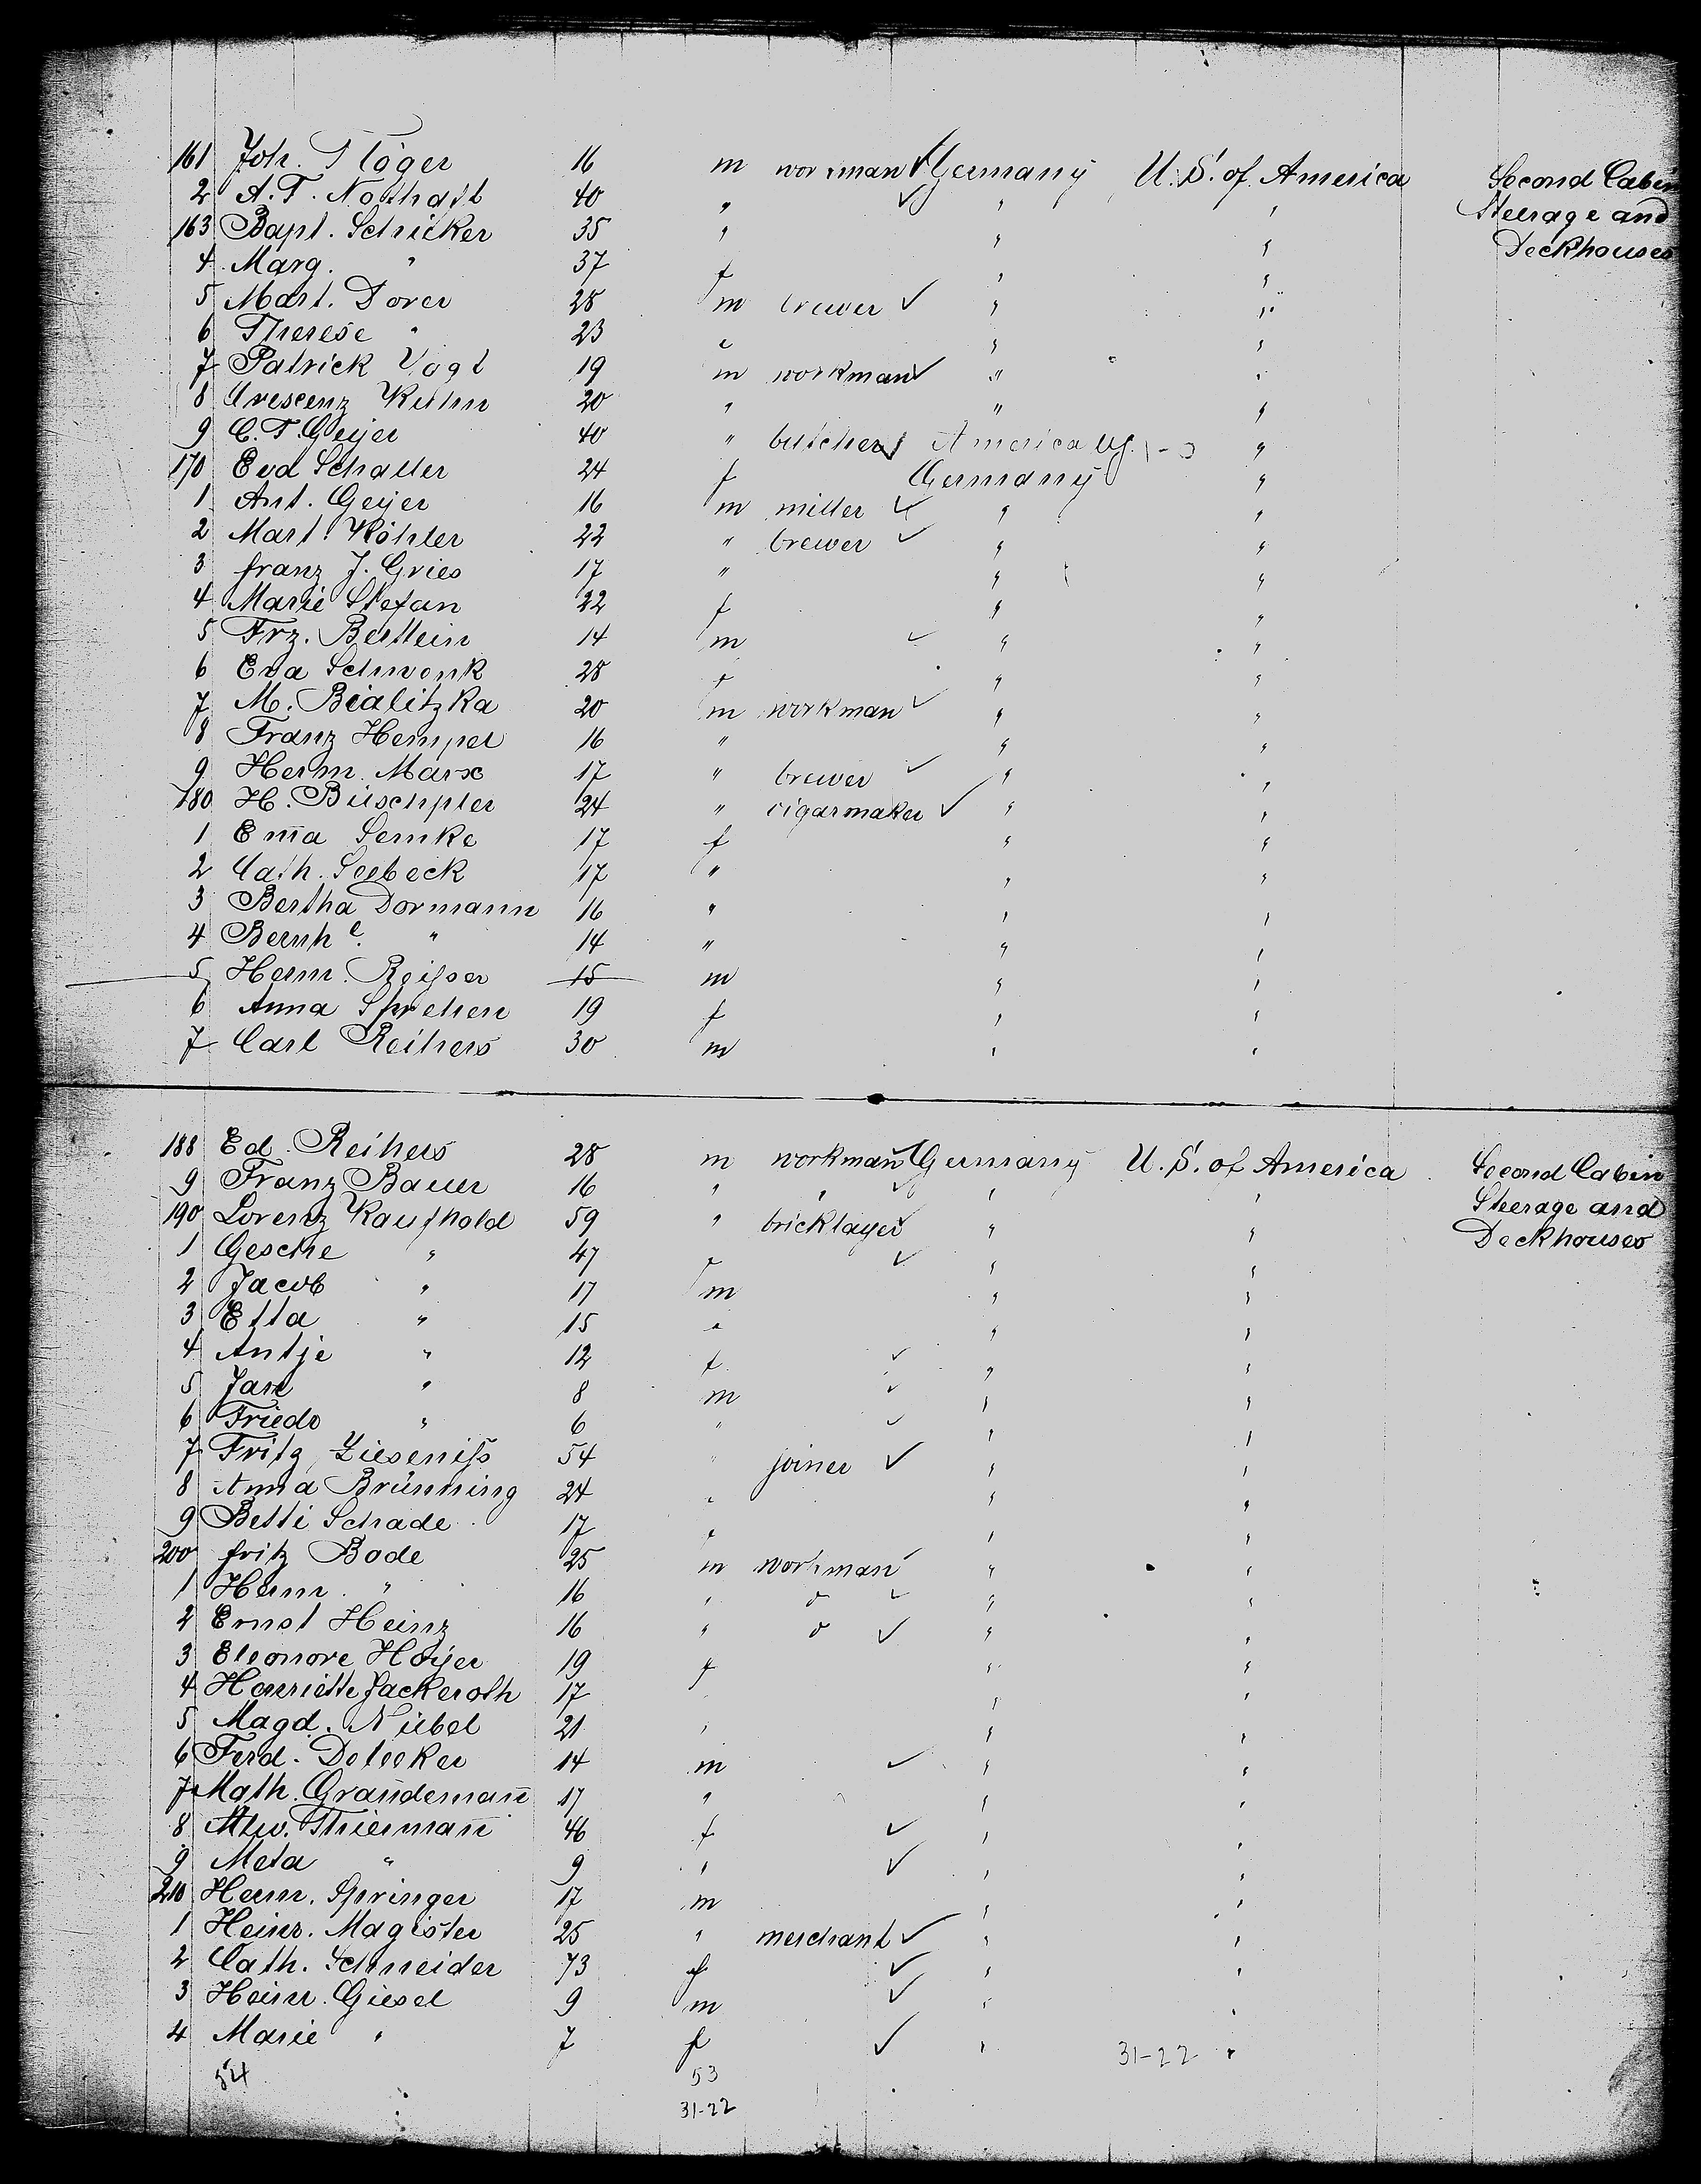 161 Joh. Flöger 16 m workman Germany U.S. of America Second Cabin
2 A. F. Nothaft 40 " " " Steerage and
163 Bapt. Schicker 35 " " " Deckhouses
4 Marg. " 37 f " "
5 Mart. Dorer 28 m brewer " "
6 Therese " 23 f " "
7 Patrick Vogt 19 m workman " "
8 Crescenz Kuhn 20 " " "
9 C. F. Geyer 40 " butcher America "
170 Eva Schaller 24 f Germany "
1 Ant. Geyer 16 m miller " "
2 Mart. Köhler 22 " brewer " "
3 Franz J. Gries 17 " " "
4 Marie Stefan 22 f " "
5 Frz. Bertlein 14 m " "
6 Eva Schwenk 28 f " "
7 M. Bialitzka 20 m workman " "
8 Franz Hempel 16 " " "
9 Herm. Marx 17 " brewer " "
180 H. Büschpler 24 " cigarmaker " "
1 Em̄a Semke 17 f " "
2 Cath. Seebeck 17 " " "
3 Bertha Dormann 16 " " "
4 Bernh e. " 14 " " "
5 Herm. Reisser 15 m " "
6 Anna Spreken 19 f " "
7 Carl Reihers 30 m " "
188 Ed. Reihers 28 m workman Germany U.S. of America Second Cabin
9 Franz Bauer 16 " " " " Steerage and
190 Lorenz Kaufhold 59 " bricklayer " " Deckhouses
1 Gesche " 47 f " "
2 Jacob " 17 m " "
3 Etta " 15 f " "
4 Antje " 12 f " "
5 Jan " 8 m " "
6 Friedr " 6 " " "
7 Fritz Zieseniss 54 " joiner " "
8 Anna Brünning 24 f " "
9 Betti Schade 17 f " "
200 Fritz Bode 25 m workman " "
1 Herm. " 16 " o " "
2 Ernst Heinz 16 " o " "
3 Eleonore Hoyer 19 f " "
4 Henriette Jackeroth 17 " " "
5 Magd. Nübel 21 " " "
6 Ferd. 14 m " "
7 Math. Gran̄deman̄ 17 " " "
8 Alw. Thierman̄ 46 f " "
9 Meta " 9 " " "
210 Herm. Springer 17 m " "
1 Heinr. Magister 25 " merchant " "
2 Cath. Schneider 73 f " "
3 Heinr. Giesel 9 m " "
4 Marie " 7 f " 31-22 "
54 53
31-22